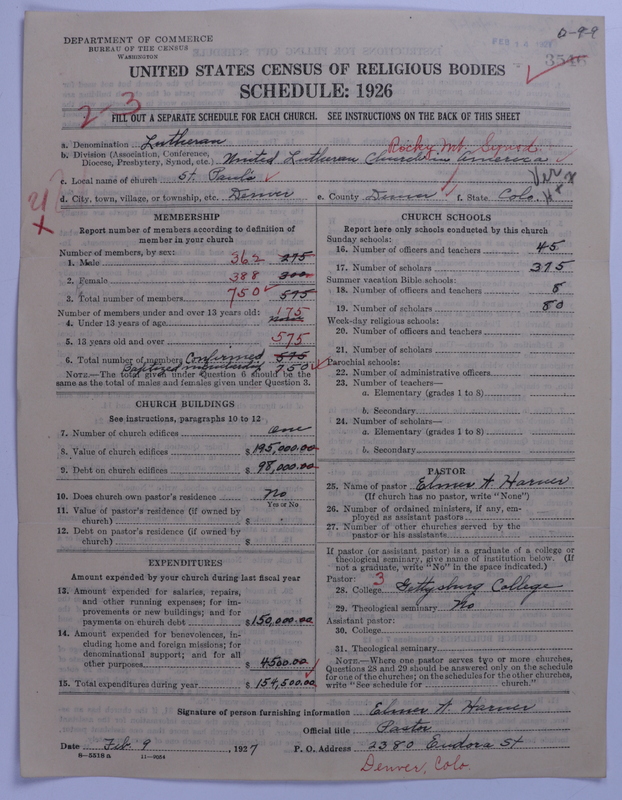 DEPARTMENT OF COMMERCE
BUREAU OF THE CENSUS
WASHINGTON
UNITED STATES CENSUS OF RELIGIOUS BODIES
SCHEDULE: 1926
2-3
FILL OUT A SEPARATE SCHEDULE FOR EACH CHURCH. SEE INSTRUCTIONS ON THE BACK OF THIS SHEET
a. Denomination Lutheran
Rocky Mt. Synod.
b. Division (Association, Conference, Diocese, Presbytery, Synod, etc.) United Lutheran Church in America
c. Local name of church St. Paul's
d. City, town, village, or township, etc. Denver e. County Denver f. State Colo.
MEMBERSHIP
Report number of members according to definition of member in your church
Number of members, by sex:
1. Male 362 275
2. Female 388 300
3. Total number of members 750 575
Number of members under and over 13 years old:
4. Under 13 years of age 175
5. 13 years old and over 575
6. Total number of members Confirmed 575
Baptized membership 750
NOTE.—The total given under Question 6 should be the same as the total of males and females given under Question 3.
CHURCH BUILDINGS
See instructions, paragraphs 10 to 12
7. Number of church edifices one
8. Value of church edifices $195,000.00
9. Debt on church edifices $98,000.00
10. Does church own pastor's residence No
Yes or No
11. Value of pastor's residence (if owned by church) $
12. Debt on pastor's residence (if owned by church) $
EXPENDITURES
Amount expended by your church during last fiscal year
13. Amount expended for salaries, repairs, and other running expenses; for improvements or new buildings; and for payments on church debt $150,000.00
14. Amount expended for benevolences, including home and foreign missions; for denominational support; and for all other purposes $4500.00
15. Total expenditures during year $154,500.00
CHURCH SCHOOLS
Report here only schools conducted by this church
Sunday schools:
16. Number of officers and teachers 45
17. Number of scholars 375
Summer vacation Bible schools:
18. Number of officers and teachers 8
19. Number of scholars 80
Week-day religious schools:
20. Number of officers and teachers
21. Number of scholars
Parochial schools:
22. Number of administrative officers
23. Number of teachers—
a. Elementary (grades 1 to 8)
b. Secondary
24. Number of scholars—
a. Elementary (grades 1 to 8)
b. Secondary
PASTOR
25. Name of pastor Elmer W. Harner
(If church has no pastor, write "None")
26. Number of ordained ministers, if any, employed as assistant pastors
27. Number of other churches served by the pastor or his assistants
If pastor (or assistant pastor) is a graduate of a college or theological seminary, give name of institution below. (If not a graduate, write "No" in the space indicated.)
Pastor: 3
28. College Gettysburg College
29. Theological seminary No
Assistant pastor:
30. College
31. Theological seminary
NOTE.—Where one pastor serves two or more churches, Questions 28 and 29 should be answered only on the schedule for one of the churches; on the schedules for the other churches, write "See schedule for church."
Signature of person furnishing information Elmer W. Harner
Official title Pastor
Date Feb. 9, 1927 P. O. Address 2380 Eudora St
8-5518a 11-9054
Denver, Colo.